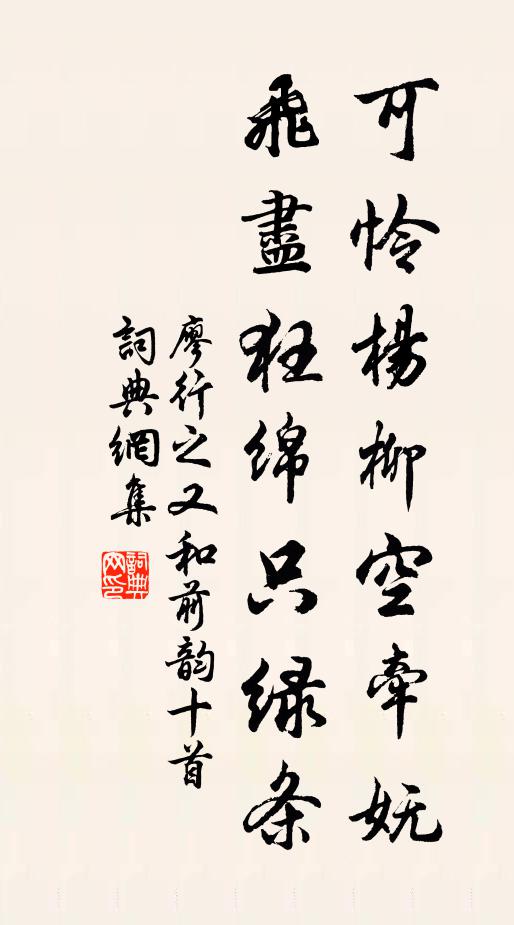 可怜楊柳空牽妩
飛盡狂绵只绿条
廖行之又和前韵十首
詞典網集
詞典网印